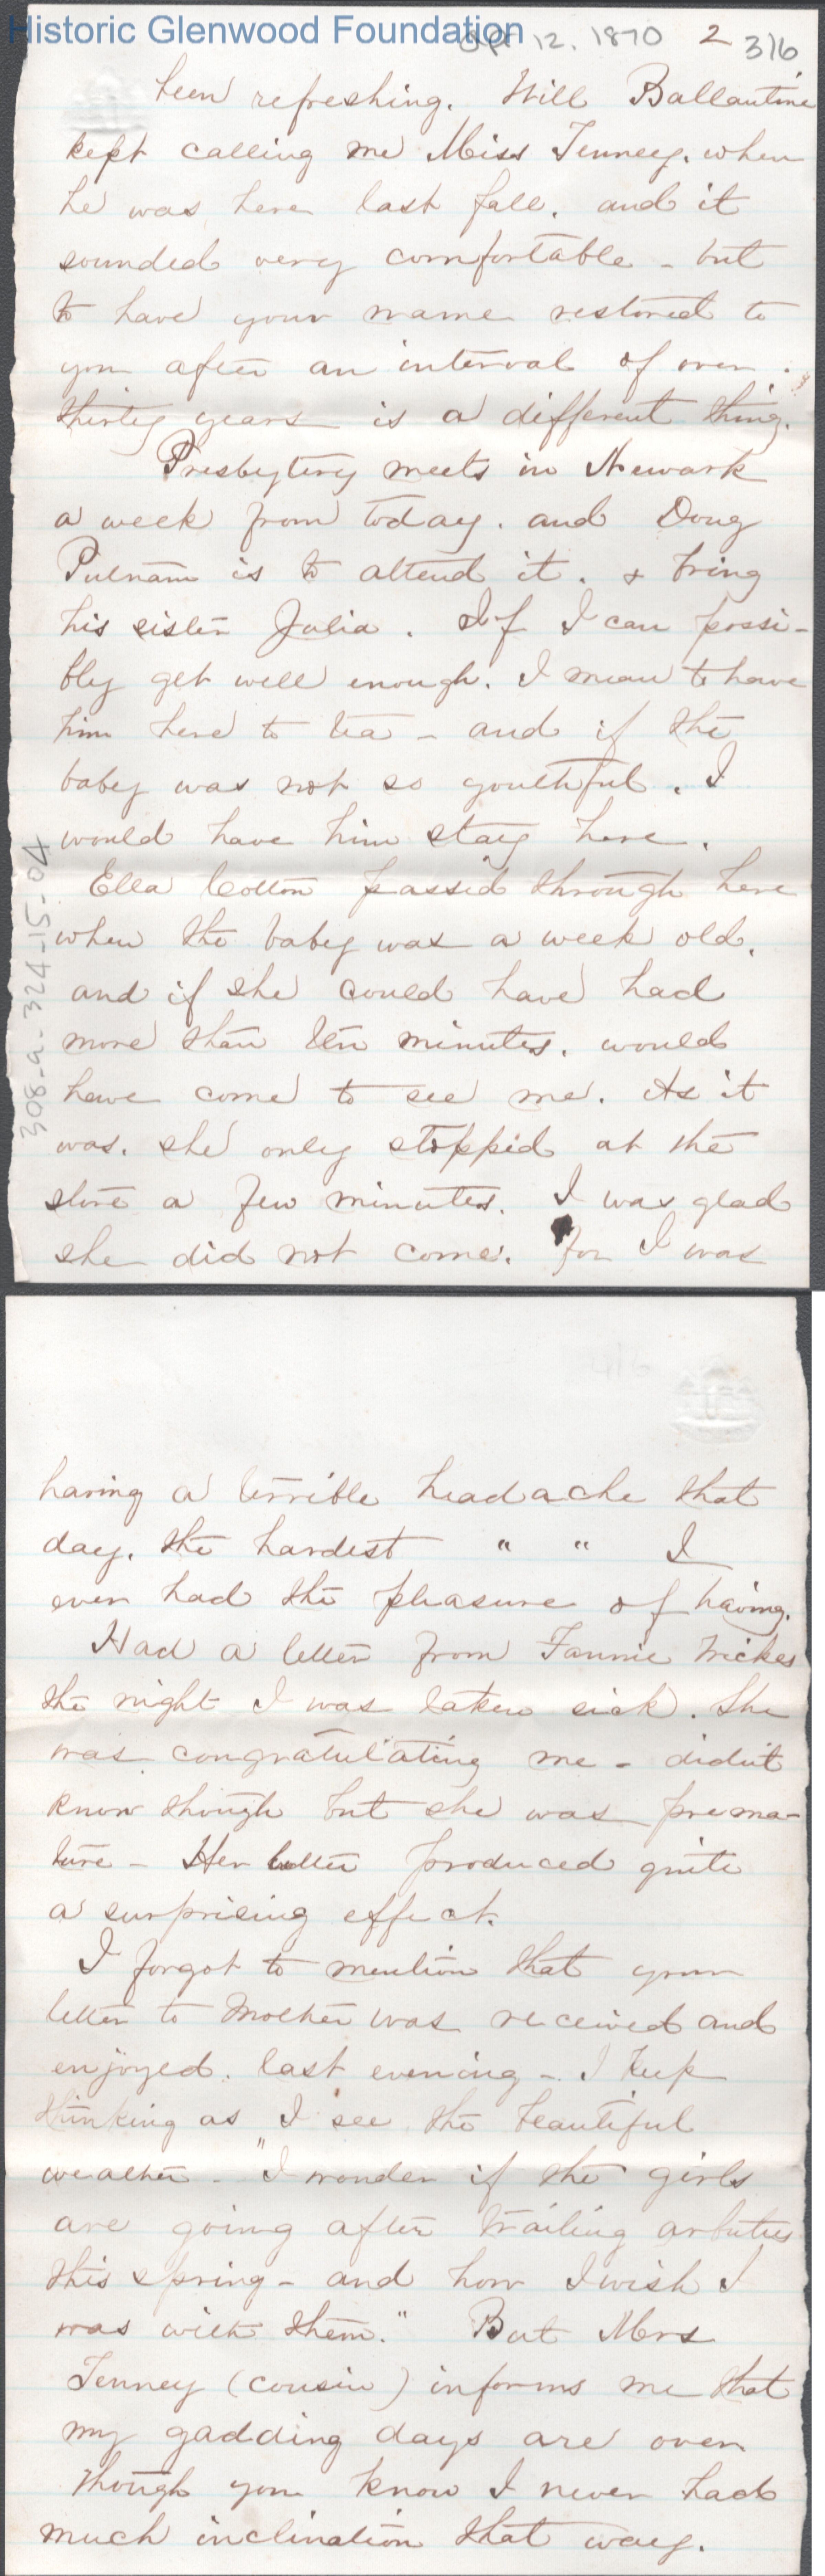 Historic Glenwood Foundation
Apr 12. 1870 2 316
been refreshing. Will Ballantine
kept calling me Miss Tenney. when
he was here last fall. and it
sounded very comfortable - but
to have your name restored to
you after an interval of over
thirty years is a different thing.
Presbytery meets in Newark
a week from today. and Doug
Putnam is to attend it. & bring
his sister Julia. If I can possi-
bly get well enough. I mean to have
him here to tea - and if the
baby was not so youthful. I
would have him stay here.
Ella Cotton passed through here
when the baby was a week old.
and if she could have had
more than ten minutes. would
have come to see me. As it
was. she only stopped at the
store a few minutes. I was glad
she did not come. for I was
308-a-324-15-04
having a terrible headache that
day. the hardest " " I
ever had the pleasure of having.
Had a letter from Fannie Wickes
the night I was taken sick. She
was congratulating me - didn't
know though but she was prema-
ture - Her letter produced quite
a surprising effect.
I forgot to mention that your
letter to Mother was received and
enjoyed. last evening - I keep
thinking as I see the beautiful
weather - "I wonder if the girls
are going after trailing arbutus
this spring - and how I wish I
was with them." But Mrs
Tenney (cousin) informs me that
my gadding days are over
though you know I never had
much inclination that way.